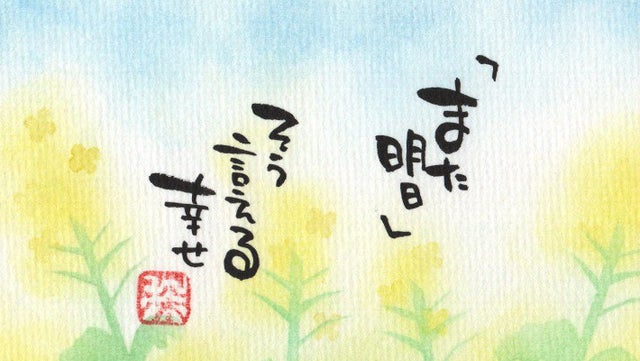 「また
明日」
そう言える
幸せ